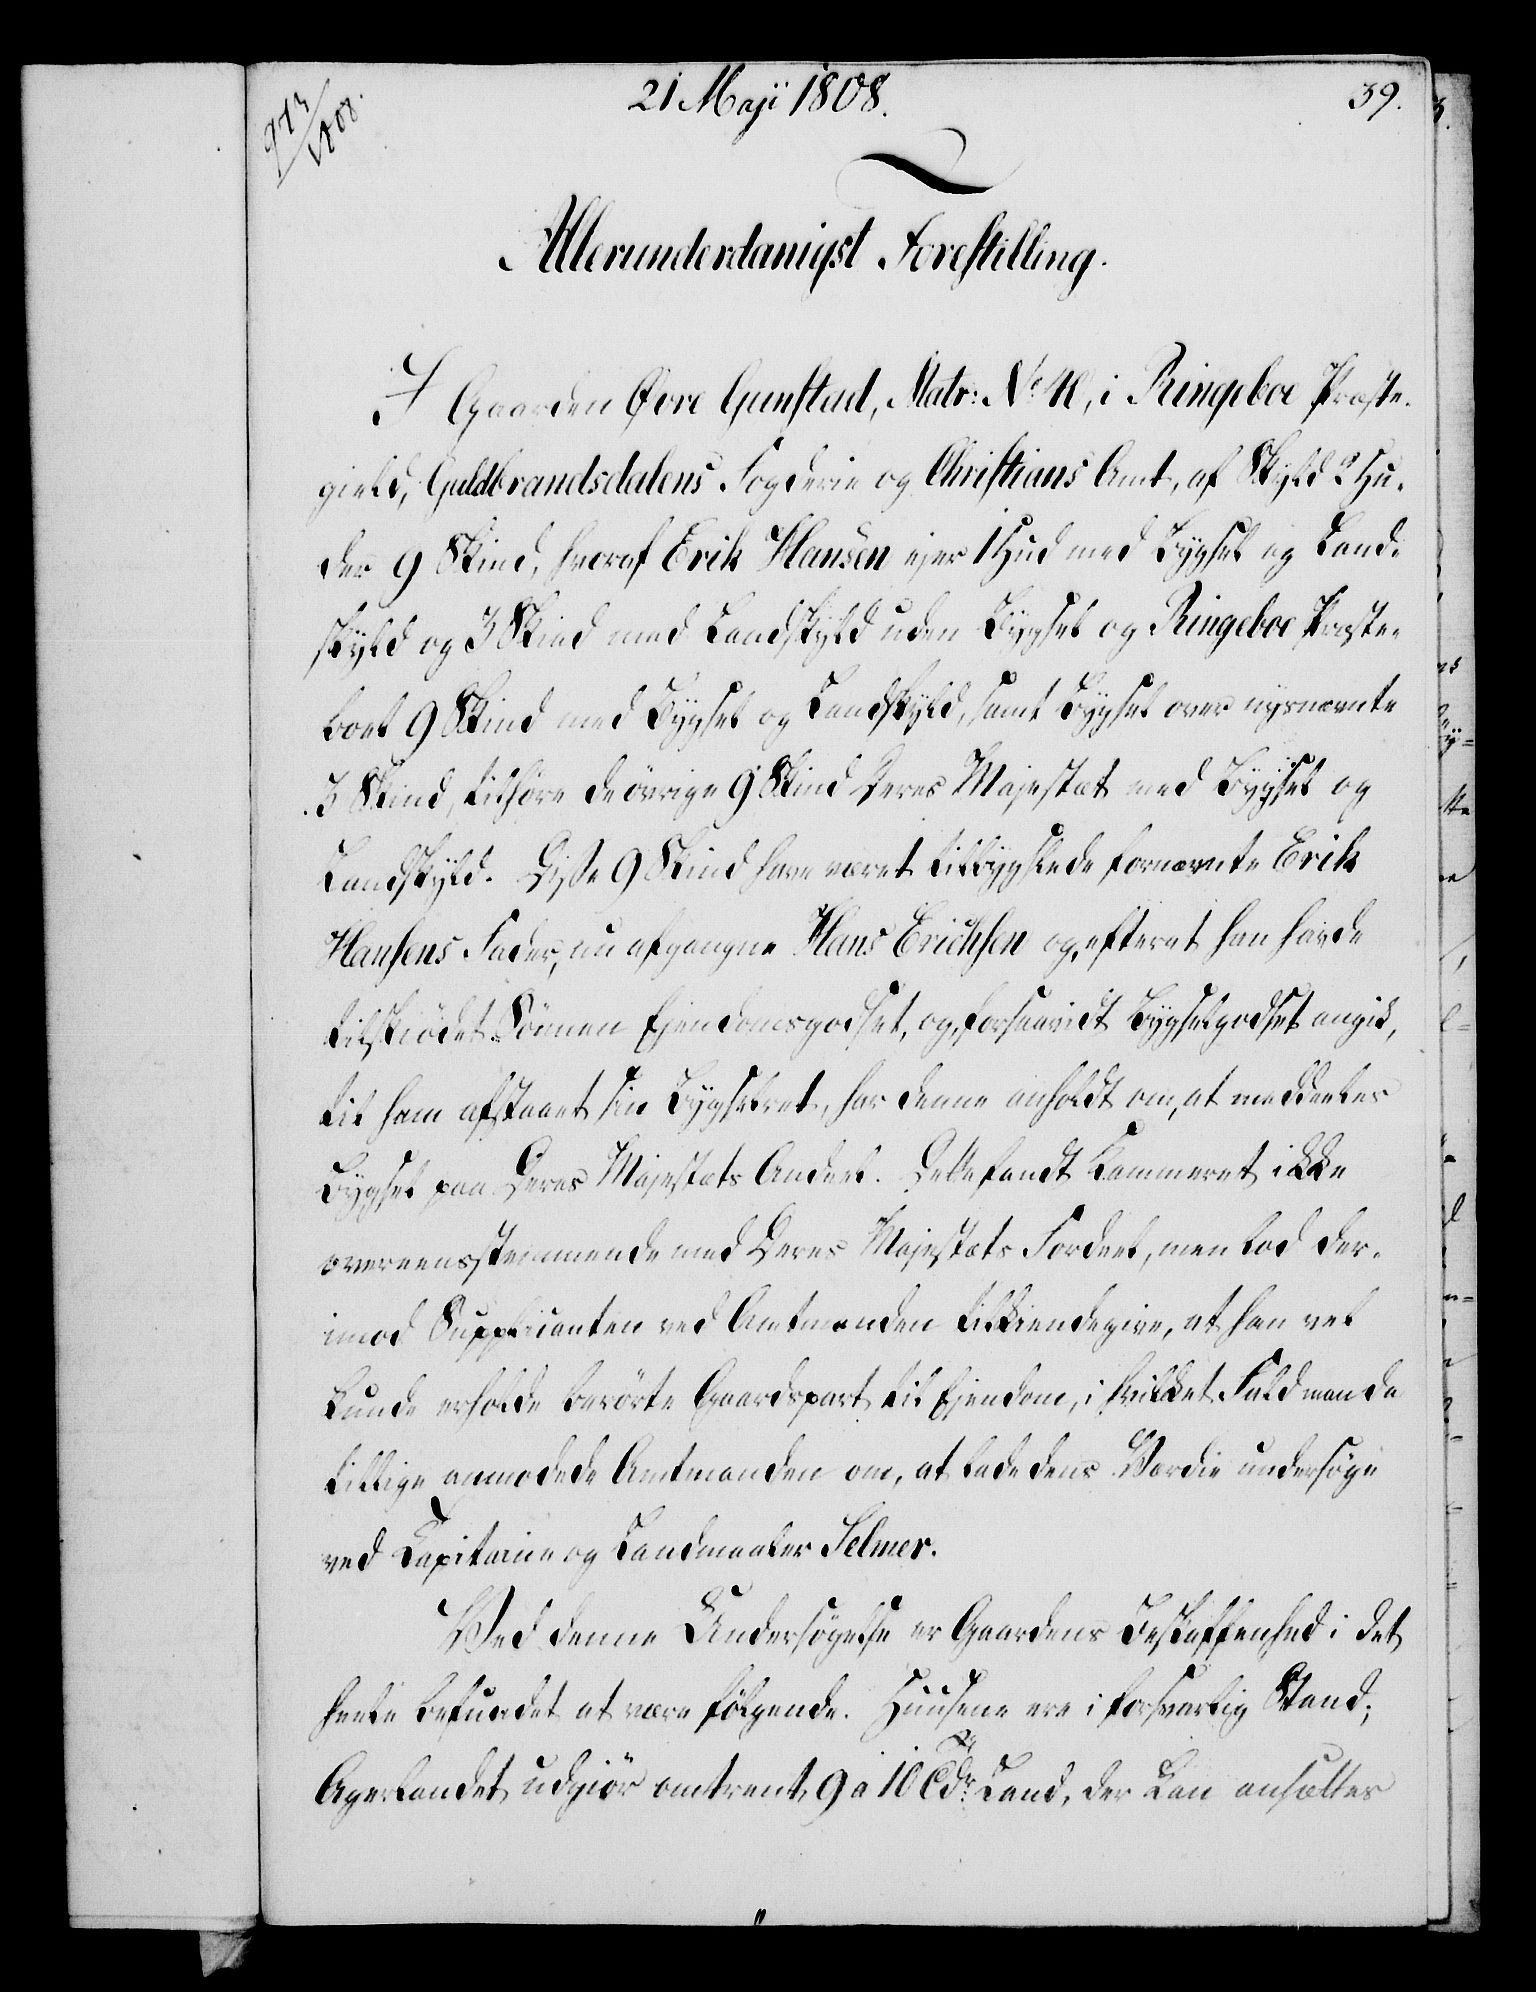 973
1808.
21 Maji 1808.
39.
Allerunderdanigst Forestilling.
I Gaarden Øvre Gunstad, Matr: No 40, i Ringeboe Præste-
gield, Guldbrandsdalens Fogderie og Christians Amt, af Skyld 2 Hu-
der 9 Skind, hvoraf Erik Hansen ejer 1 Hud med Bygsel og Land-
skyld og 3 Skind med Landskyld uden Bygsel og Ringeboe Præste-
boel 9 Skind med Bygsel og Landskyld, samt Bygsel over nysnævnte
3 Skind, tilhøre de øvrige 9 Skind Deres Majestæt med Bygsel og
Landskyld. Disse 9 Skind have været tilbygslede fornævnte Erik
Hansens Fader, nu afgangne Hans Erichsen og, efterat han havde
tilskiødet Sønnen Ejendomsgodset, og, forsaavidt Bygselgodset angik,
til ham afstaaet sin Bygselret, har denne anholdt om, at meddeeles
Bygsel paa Deres Majestæts Andeel. Dette fandt Kammeret ikke
overeensstemmende med Deres Majestæts Fordeel, men lod der-
imod Supplicanten ved Amtmanden tilkiendegive, at han vel
kunde erholde berørte Gaardspart til Ejendom, i hvilket Fald man da
tillige anmodede Amtmanden om, at lade dens Værdie undersøge
ved Capitaine og Landmaaler Selmer.
Ved denne Undersøgelse er Gaardens Beskaffenhed i det
heele befundet at være følgende. Huusene ere i forsvarlig Stand;
Agerlandet udgiør omtrent 9 a 10 Tdr Land, der kan ansættes